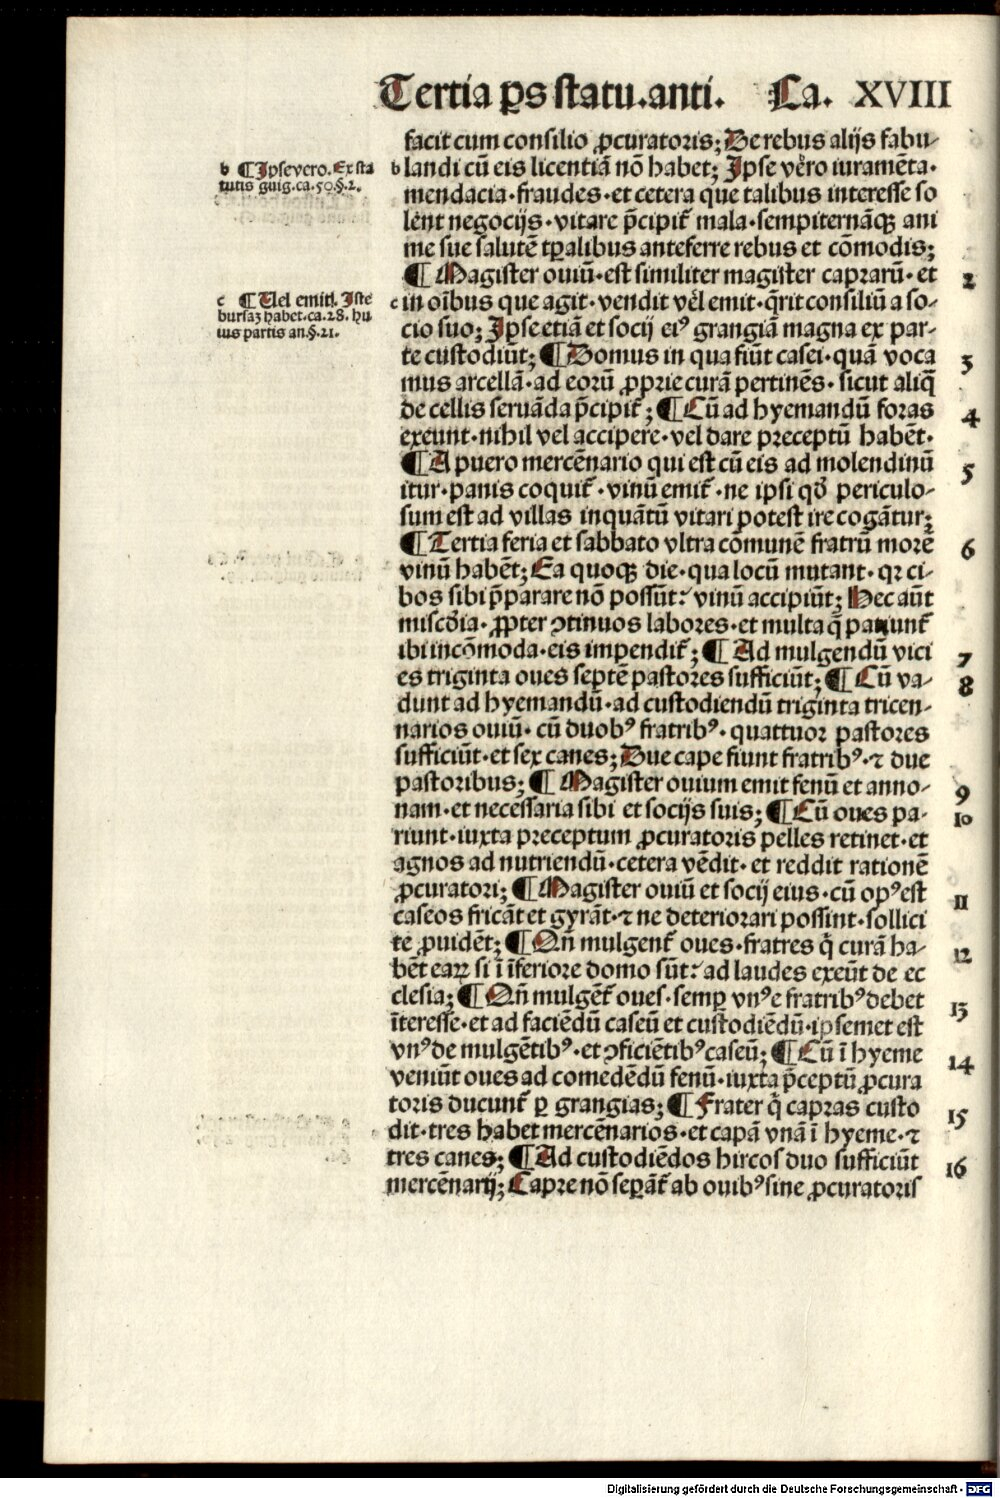 Tertia ꝑs statu.anti. Ca. XVIII
facit cum consilio ꝓcuratoris; De rebus alijs fabu-
b landi cū eis licentiā nō habet; Ipse vēro iuramēta·
mendacia·fraudes·et cetera que talibus interesse so
lent negocijs·vitare p̄cipit᷑ mala·sempiternāqꝫ ani
me sue salutē tꝑalibus anteferre rebus et cōmodis;
¶ Magister ouiū·est similiter magister caprarū·et
c in oībus que agit·vendit vel̄ emit·q̄rit consiliū a so-
cio suo; Ipse etiā et socij eiꝰ grangiā magna ex par-
te custodiūt; ¶ Domus in qua fiūt casei·quā voca
mus arcellā·ad eorū ꝓprie curā pertinēs·sicut aliq̄
de cellis seruāda p̄cipit᷑; ¶ Cū ad hyemandū foras
exeunt·nihil vel accipere·vel dare preceptū habēt·
¶ A puero mercēnario qui est cū eis ad molendinū
itur·panis coquit᷑·vinū emit᷑·ne ipsi qđ periculo-
sum est ad villas inquātū vitari potest ire cogātur;
¶ Tertia feria et sabbato vltra cōmunē fratrū morē
vinū habēt; Ea quoqꝫ die·qua locū mutant·qꝛ ci-
bos sibi p̄parare nō possūt: vinū accipiūt; Hec aūt
miscđia·ꝓpter ꝯtinuos labores·et multa q̄ patiunt᷑
ibi incōmoda·eis impendit᷑; ¶ Ad mulgendū vici
es triginta oues septē pastores sufficiūt; ¶ Cū va-
dunt ad hyemandū·ad custodiendū triginta tricen-
narios ouiū·cū duobꝰ fratribꝰ·quattuor pastores
sufficiūt·et sex canes; Due cape fiunt fratribꝰ·⁊ due
pastoribus; ¶ Magister ouium emit fenū et anno-
nam·et necessaria sibi et socijs suis; ¶ Cū oues pa-
riunt·iuxta preceptum ꝓcuratoris pelles retinet·et
agnos ad nutriendū·cetera vēdit·et reddit rationē
ꝓcuratori; ¶ Magister ouiū et socij eius·cū opꝰ est
caseos fricāt et gyrāt·⁊ ne deteriorari possint·sollici
te ꝓuidēt; ¶ Qn̄ mulgent᷑ oues·fratres q̄ curā ha-
bēt eaꝝ si ī īferiore domo sūt: ad laudes exeūt de ec
clesia; ¶ Qn̄ mulgēt᷑ oues·semꝑ vnꝰ e fratribꝰ debet
īteresse·et ad faciēdū caseū et custodiēdū·ipsemet est
vnꝰ de mulgētibꝰ·et ꝯficiētibꝰ caseū; ¶ Cū ī hyeme
veniūt oues ad comedēdū fenū·iuxta p̄ceptū ꝓcura
toris ducunt᷑ ꝑ grangias; ¶ Frater q̄ capras custo
dit·tres habet mercēnarios·et capā vnā ī hyeme·⁊
tres canes; ¶ Ad custodiēdos hircos duo sufficiūt
mercēnarij; Capre nō seꝑāt᷑ ab ouibꝰ sine ꝓcuratoris
b ¶ Ipse vero. Ex sta
tutis guig.ca.50.§.2.
c ¶ Uel emit. Iste
bursaꝫ habet.ca.28. hu
ius partis an.§.21.
2
3
4
5
6
7
8
9
10
11
12
13
14
15
16
Digitalisierung gefördert durch die Deutsche Forschungsgemeinschaft - DFG